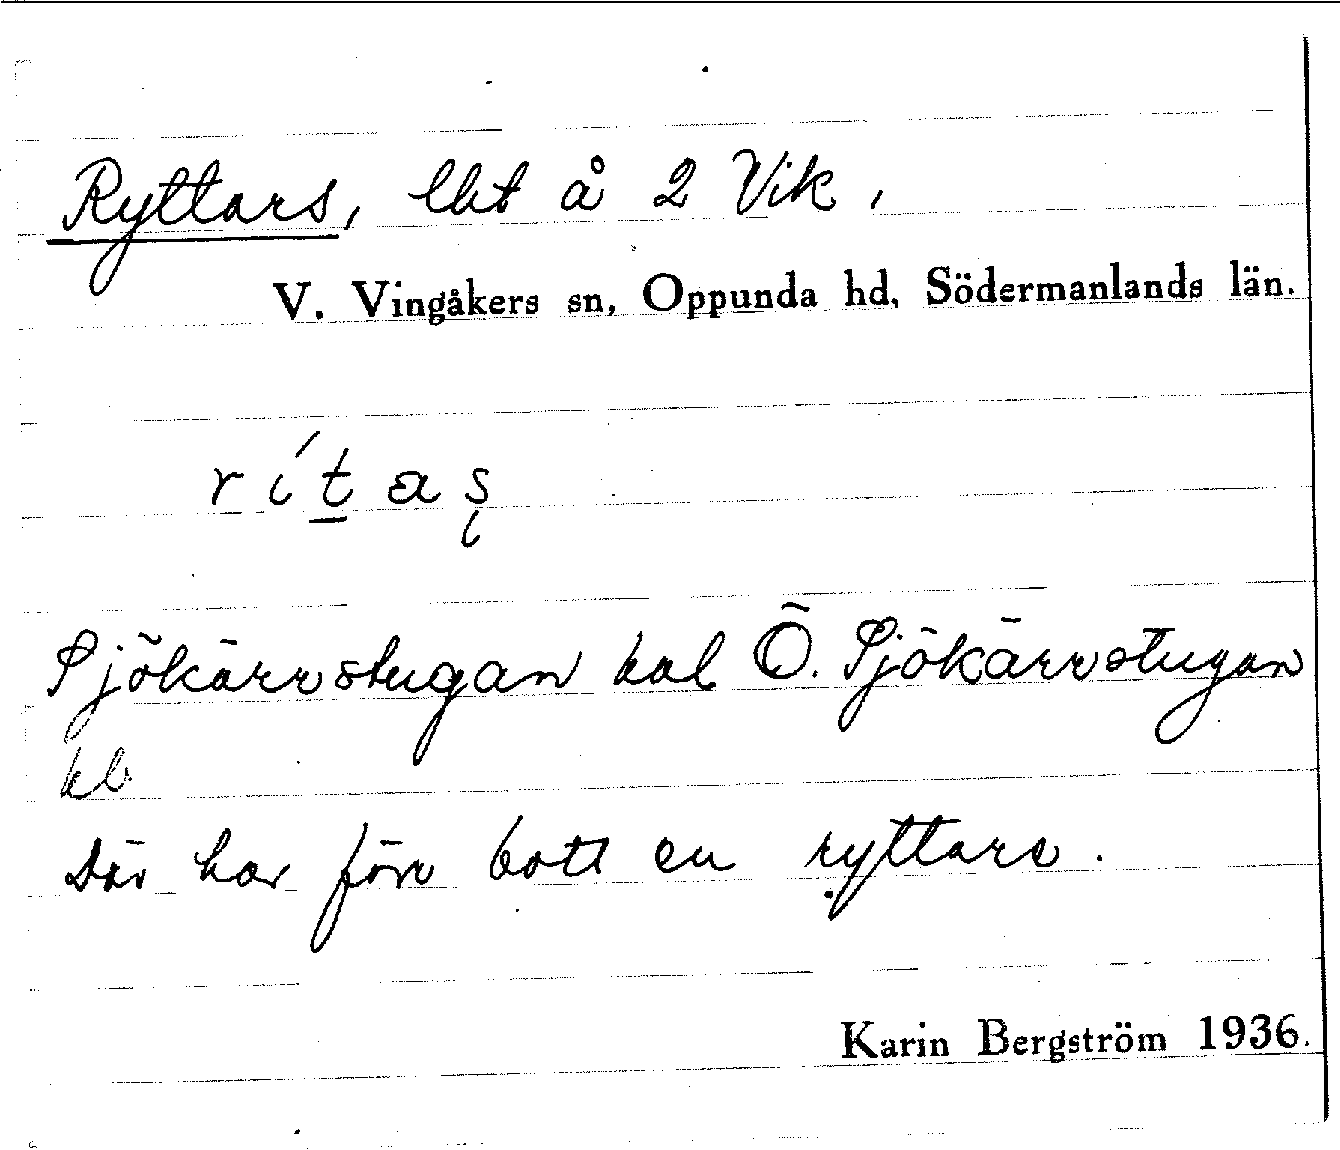 Ryttars, lht å 2 Vik,
V. Vingåkers sn, Oppunda hd, Södermanlands län.
rítaş
Sjökärrstugan kal Ö. Sjökärrstugan
kb
Där har förr bott en ryttare.
Karin Bergström 1936.